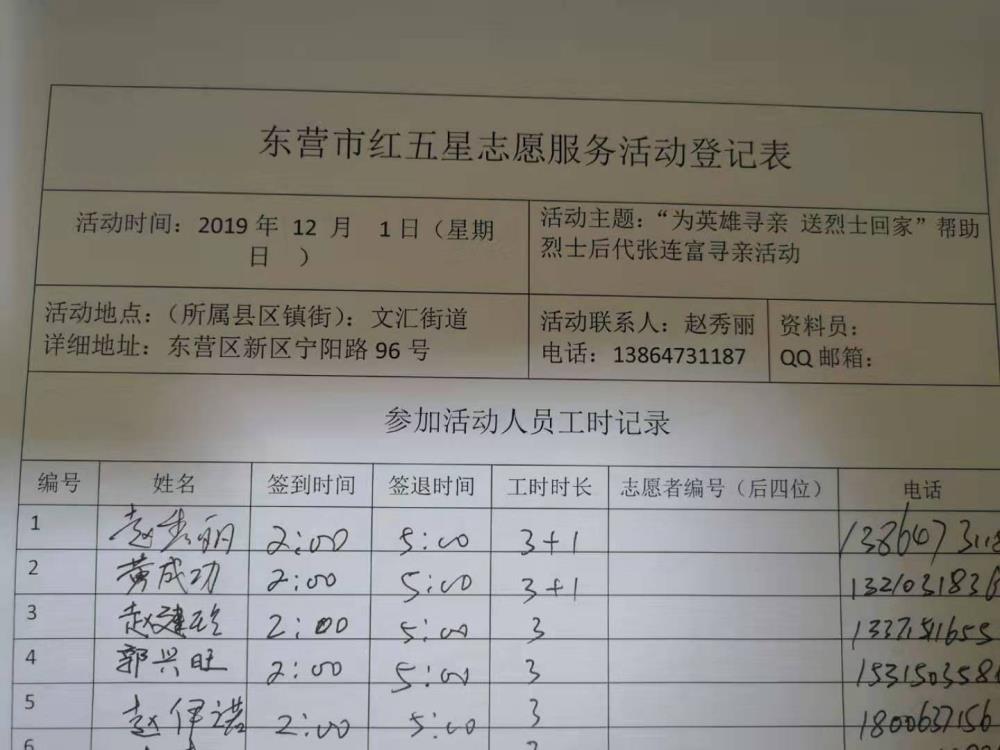 东营市红五星志愿服务活动登记表
活动时间：2019 年 12 月 1 日（星期
日 ）
活动主题：“为英雄寻亲 送烈士回家”帮助
烈士后代张连富寻亲活动
活动地点：（所属县区镇街）：文汇街道
详细地址：东营区新区宁阳路 96 号
活动联系人：赵秀丽
电话：13864731187
资料员：
QQ 邮箱：
参加活动人员工时记录
编号 姓名 签到时间 签退时间 工时时长 志愿者编号（后四位） 电话
1 赵秀丽 2:00 5:00 3+1 1386473118
2 黄成功 2:00 5:00 3+1 132103183
3 赵建 2:00 5:00 3
4 郭兴旺 2:00 5:00 3 1531503558
5 赵伊诺 2:00 5:00 3 1800637156
6